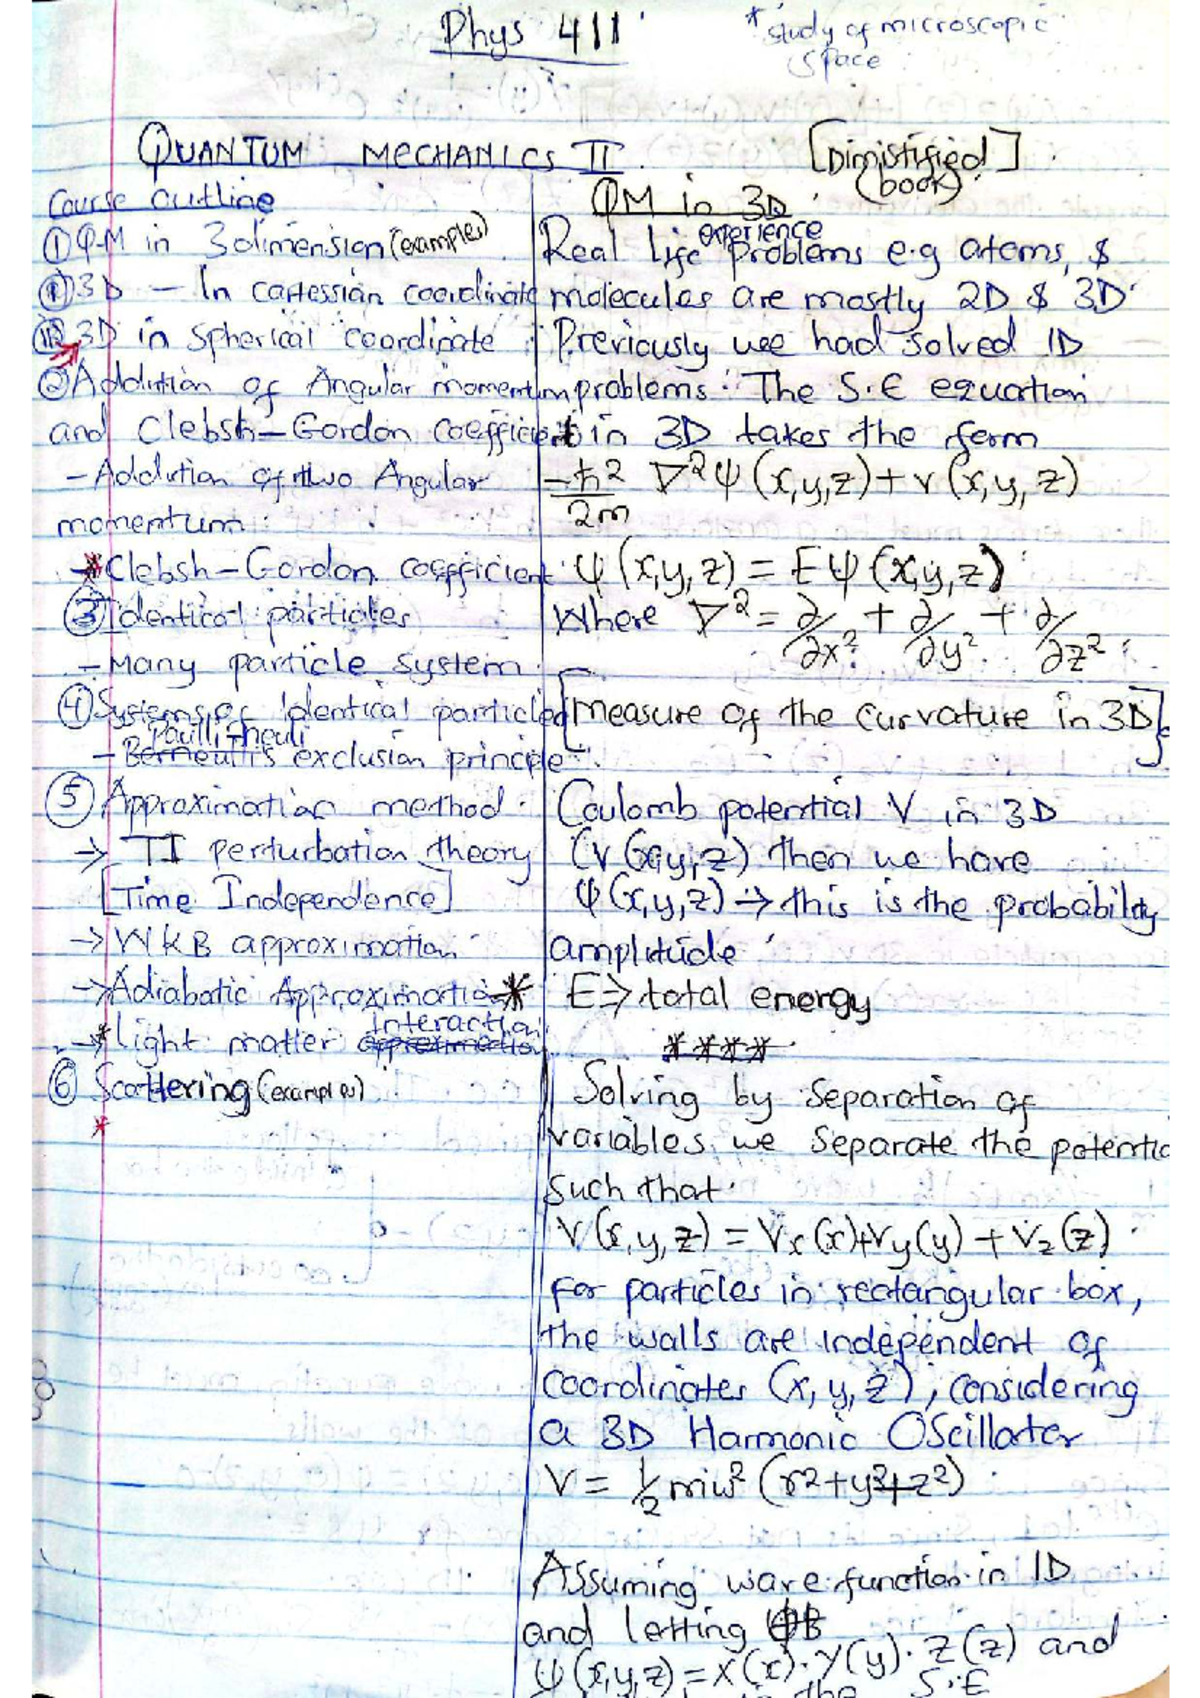 Phys 411
* study of microscopic
space
QUANTUM MECHANICS II.
[Dimistified]
(book)
Course outline
① Q-M in 3dimension (examples)
3D - In cartessian coordinate
3D in spherical coordinate
② Addition of Angular momentum
and Clebsh-Gordon coefficient
- Addition of two Angular
momentum
* Clebsh-Gordon coefficient
③ Identical particles
- Many particle system
④ Systems of Identical particles
- Berneulli's exclusion principle
⑤ Approximation method.
→ TI perturbation theory
[Time Independence]
→ WKB approximation
→ Adiabatic Approximation *
→* light matter approximation
Interaction
⑥ Scattering (examples)
*
QM in 3D
Real life experience problems e.g atoms, &
molecules are mostly 2D & 3D
Previously wee had solved 1D
problems. The S.E equation
in 3D takes the form
-ħ²/2m ∇²ψ(x,y,z) + v(x,y,z)
ψ(x,y,z) = Eψ(x,y,z)
Where ∇² = ∂/∂x² + ∂/∂y² + ∂/∂z²
[measure of the curvature in 3D]
Coulomb potential V in 3D
(v(x,y,z) then we have
ψ(x,y,z) → this is the probability
amplitude
E ⇒ total energy
****
Solving by separation of
variables, we separate the potentia
such that
V(x,y,z) = Vx(x)+Vy(y) + Vz(z)
For particles in rectangular box,
the walls are independent of
coordinates (x, y, z), considering
a 3D Harmonic Oscillator
V = ½mw²(x²+y²+z²)
Assuming wave function in 1D
and letting
ψ(x,y,z) = X(x)·Y(y)·Z(z) and
the S.E